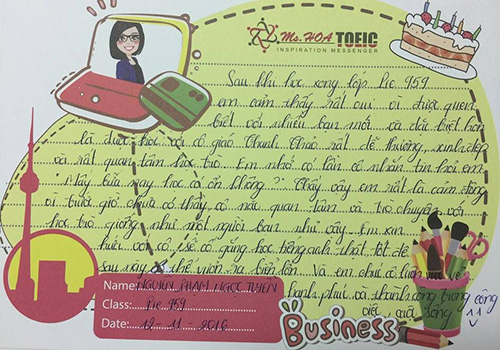 Ms.HOA TOEIC
INSPIRATION MESSENGER
Sau khi học xong lớp Pre 959
em cảm thấy rất vui vì được quen
biết với nhiều bạn mới và đặc biệt hơn
là được học với cô giáo Thanh Thảo rất dễ thương, xinh đẹp
và rất quan tâm học trò. Em nhớ có lần cô nhắn tin hỏi em
"Mấy bữa nay học có ổn không?" Thấy vậy em rất là cảm động
vì trước giờ chưa có thầy cô nào quan tâm và trò chuyện với
học trò giống như một người bạn như vậy. Em xin
hứa với cô sẽ cố gắng học tiếng anh thật tốt để
sau này có thể vươn ra biển lớn. Và em chúc cô luôn vui vẻ
hạnh phúc và thành công trong công
việc, cuộc sống
Name: NGUYỄN PHẠM NGỌC TUYỀN
Class: Pre 959
Date: 12-11-2016
Business